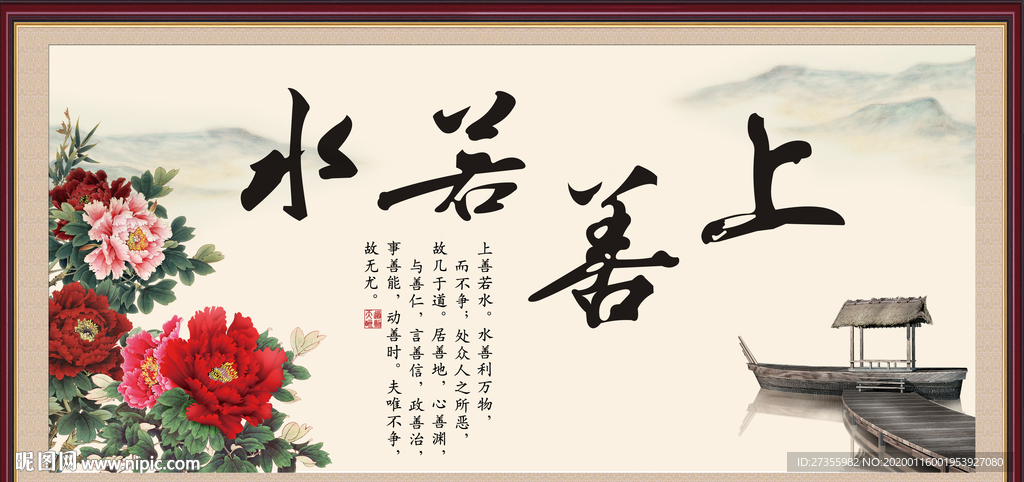 上善若水
上善若水。水善利万物，
而不争；处众人之所恶，
故几于道。居善地，心善渊，
与善仁，言善信，政善治，
事善能，动善时。夫唯不争，
故无尤。
昵图网 www.nipic.com
ID:27355982 NO:20200116001953927080